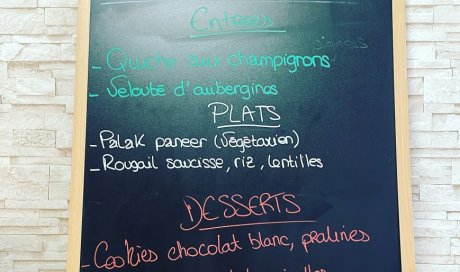 Entrées
- Quiche aux champignons
- Velouté d'aubergines
PLATS
- Palak paneer (végétarien)
- Rougail saucisse, riz, lentilles
DESSERTS
- Cookies chocolat blanc, pralines